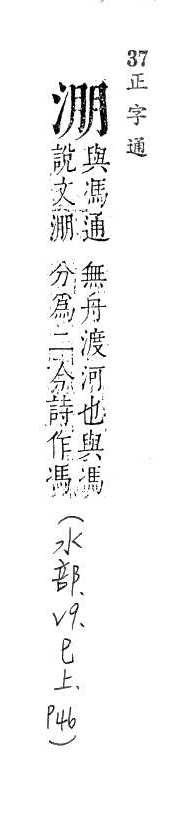 37 正字通
淜
與馮通
說文淜
無舟渡河也與馮
分爲二今詩作馮
(水部、v9、巳上、P46)